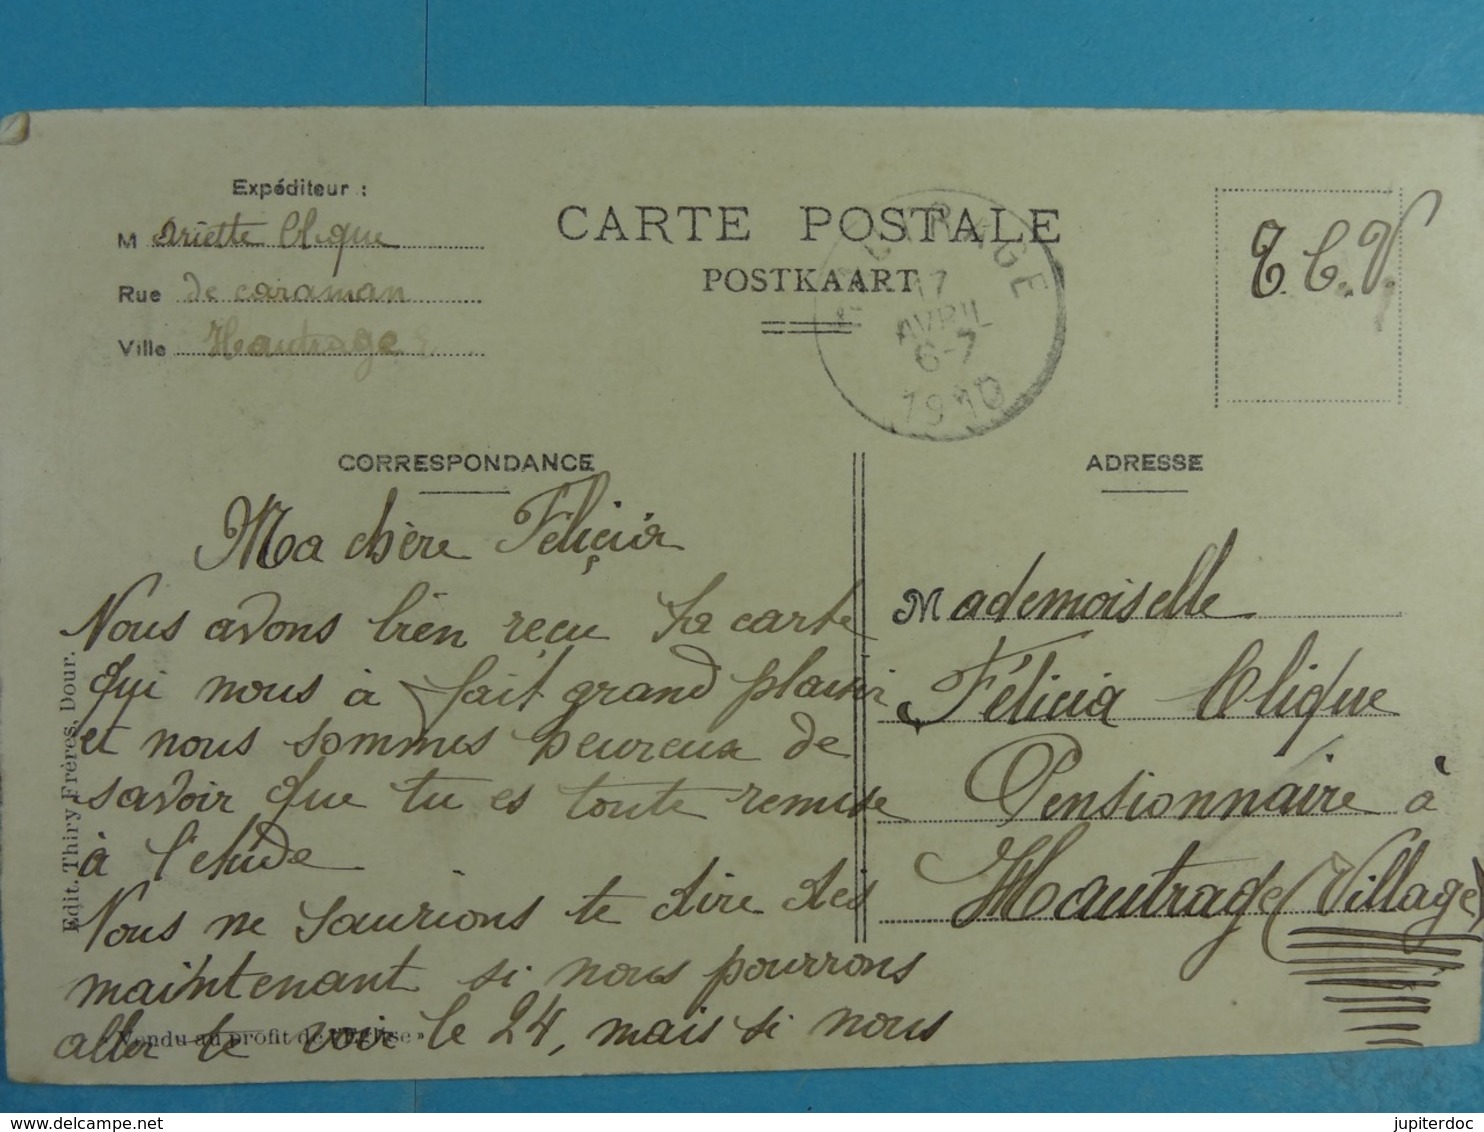 Expéditeur :
Mariette Clique
Rue de caraman
Ville Hautrage
CARTE POSTALE
POSTKAART
HAUTRAGE
17
AVRIL
6-7
1910
T.C.V.
CORRESPONDANCE
Ma chère Félicia
Nous avons bien reçu ta carte
qui nous à fait grand plaisir
et nous sommes heureux de
savoir que tu es toute remise
à l'etude
Nous ne saurions te dire dès
maintenant si nous pourrons
aller te voir le 24, mais si nous
ADRESSE
Mademoiselle
Félicia Clique
Pensionnaire à
Hautrage (Village)
Edit. Thiry Frères, Dour.
« Vendu au profit de l'Eglise »
delcampe.net
jupiterdoc